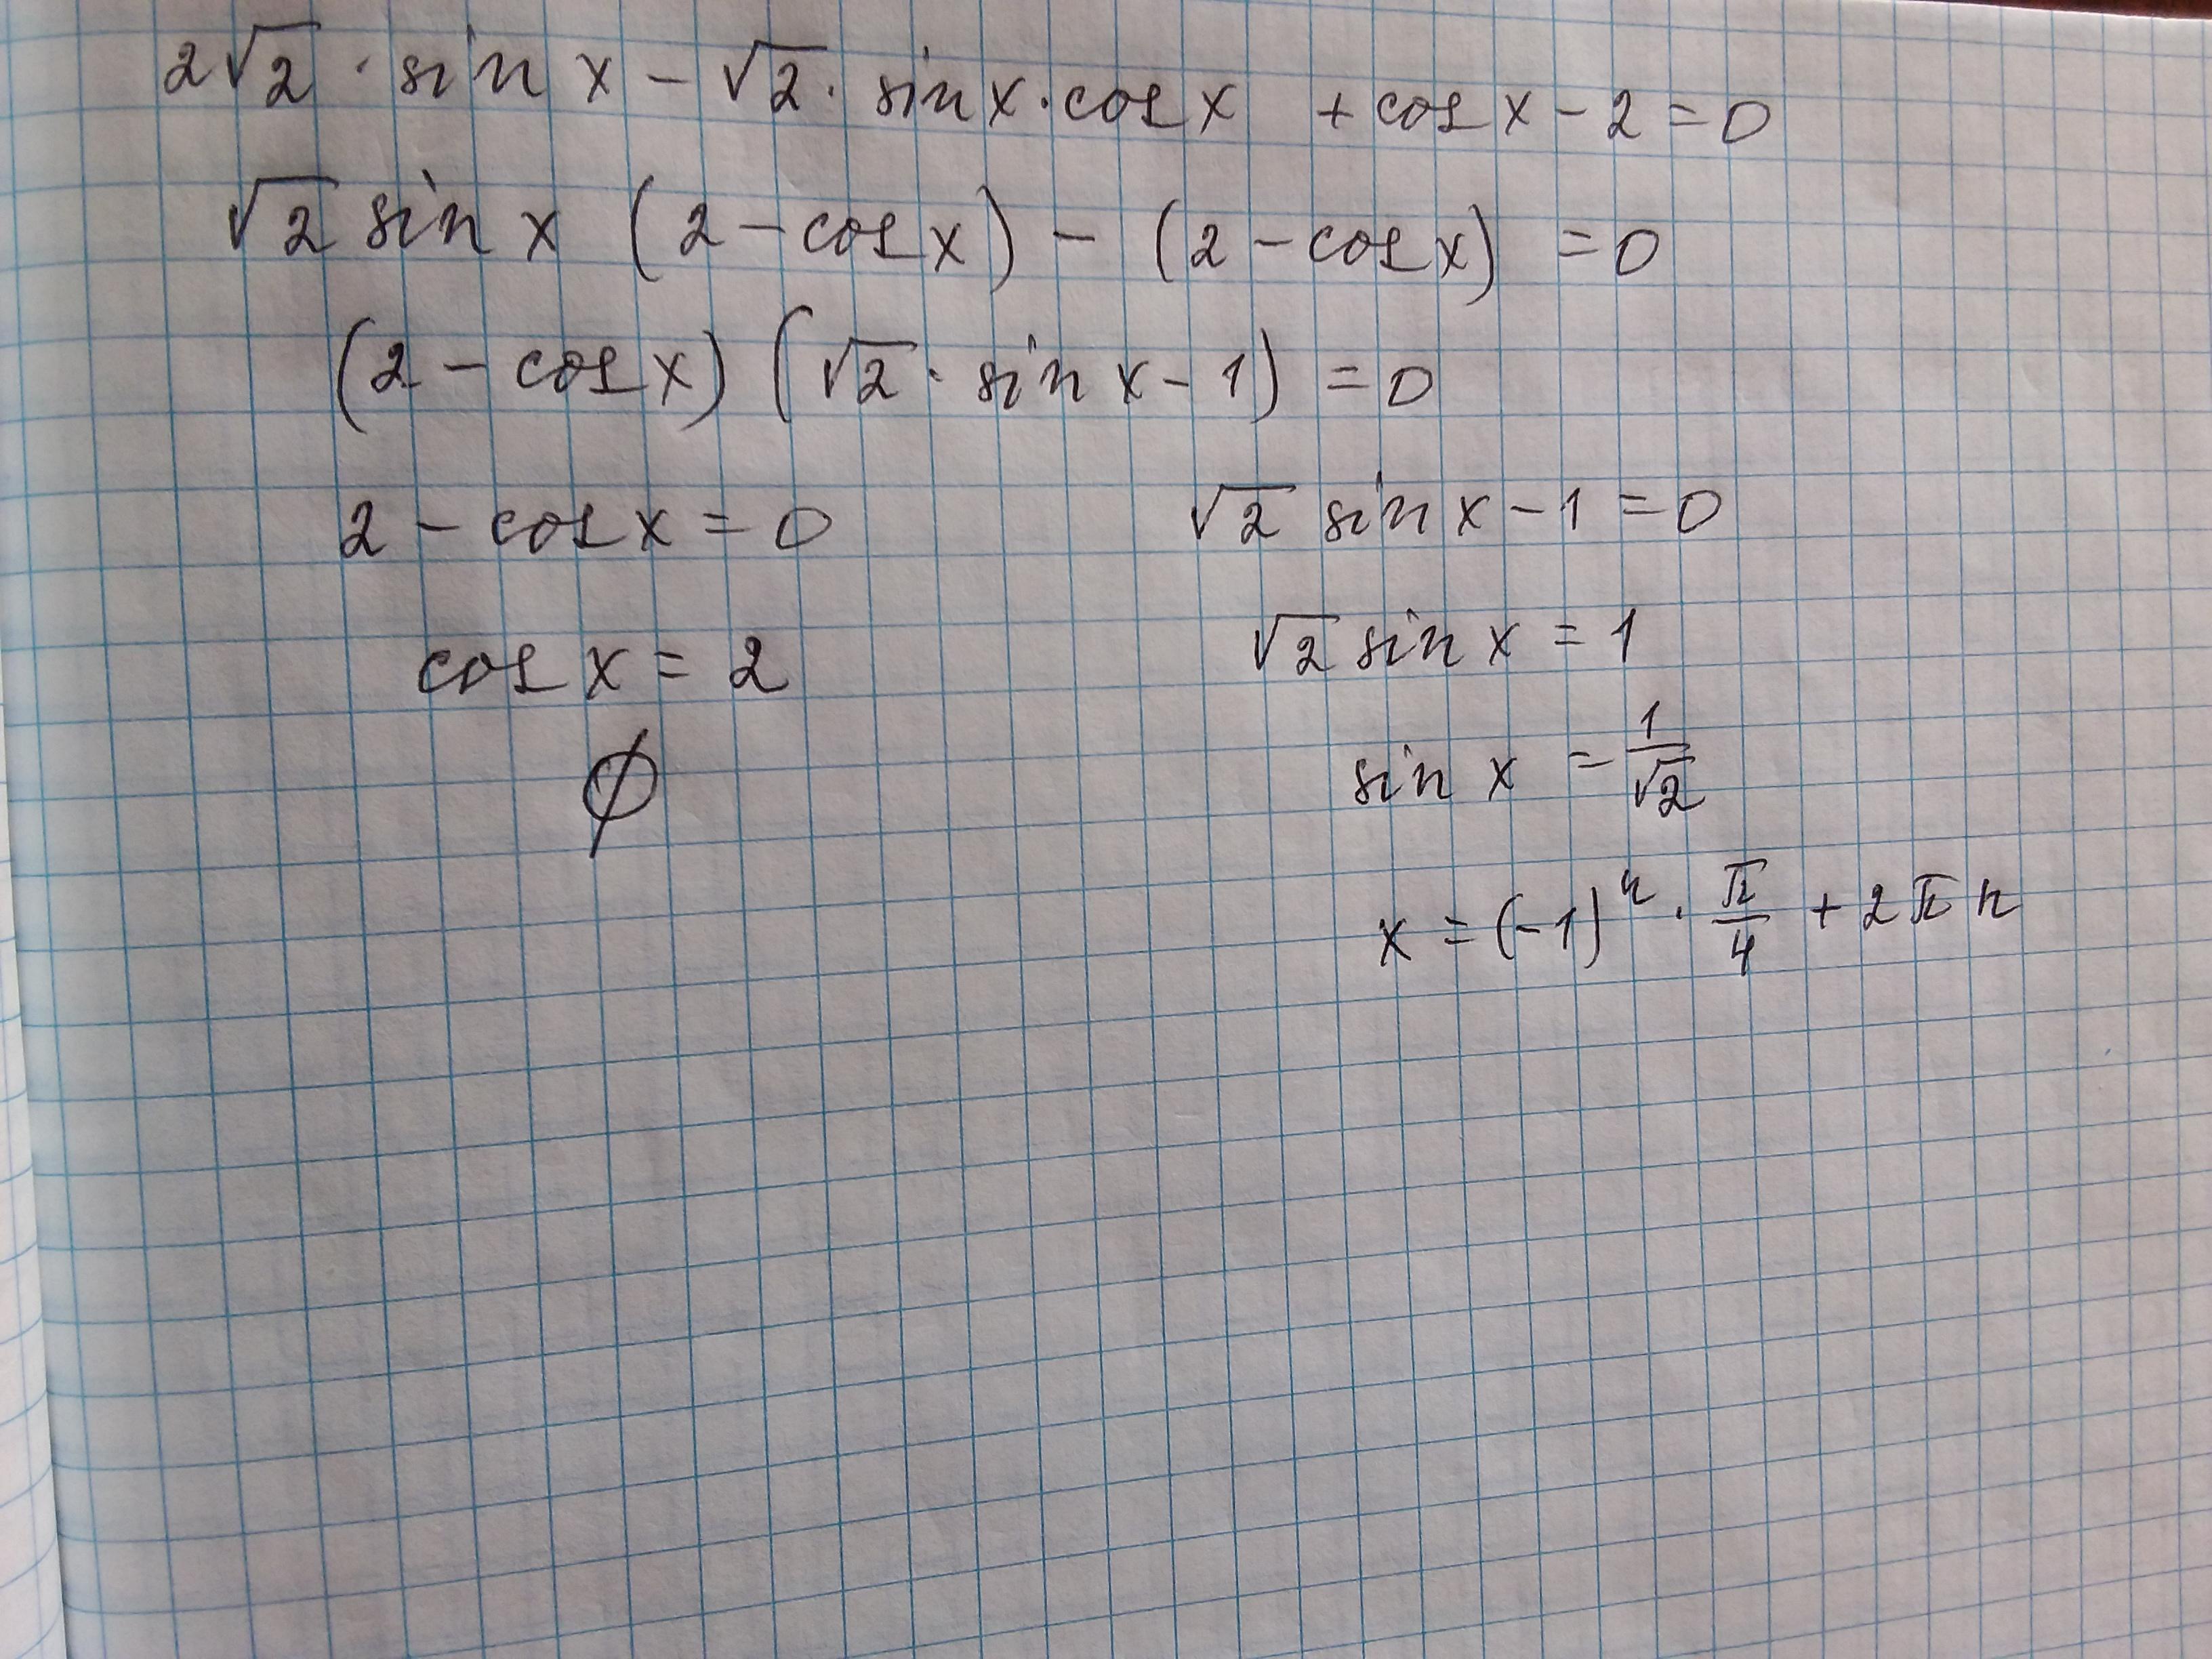 2√2 · sin x − √2 · sin x · cos x + cos x − 2 = 0
√2 sin x (2 − cos x) − (2 − cos x) = 0
(2 − cos x) (√2 · sin x − 1) = 0
2 − cos x = 0 √2 sin x − 1 = 0
cos x = 2 √2 sin x = 1
∅ sin x = 1/√2
x = (−1)ⁿ · π/4 + 2πn